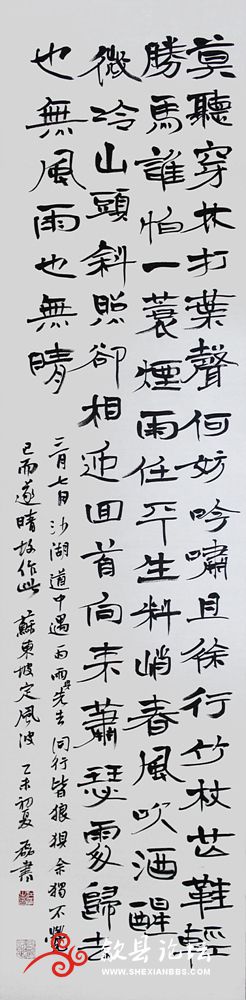 莫聽穿林打葉聲何妨吟嘯且徐行竹杖芒鞋輕
勝馬誰怕一蓑煙雨任平生料峭春風吹酒醒
微冷山頭斜照卻相迎回首向來蕭瑟處歸去
也無風雨也無晴
三月七日沙湖道中遇雨雨具先去同行皆狼狽余獨不覺
已而遂晴故作此 蘇東坡定風波 乙未初夏 磊書
歙县论坛
WWW.SHEXIANBBS.COM